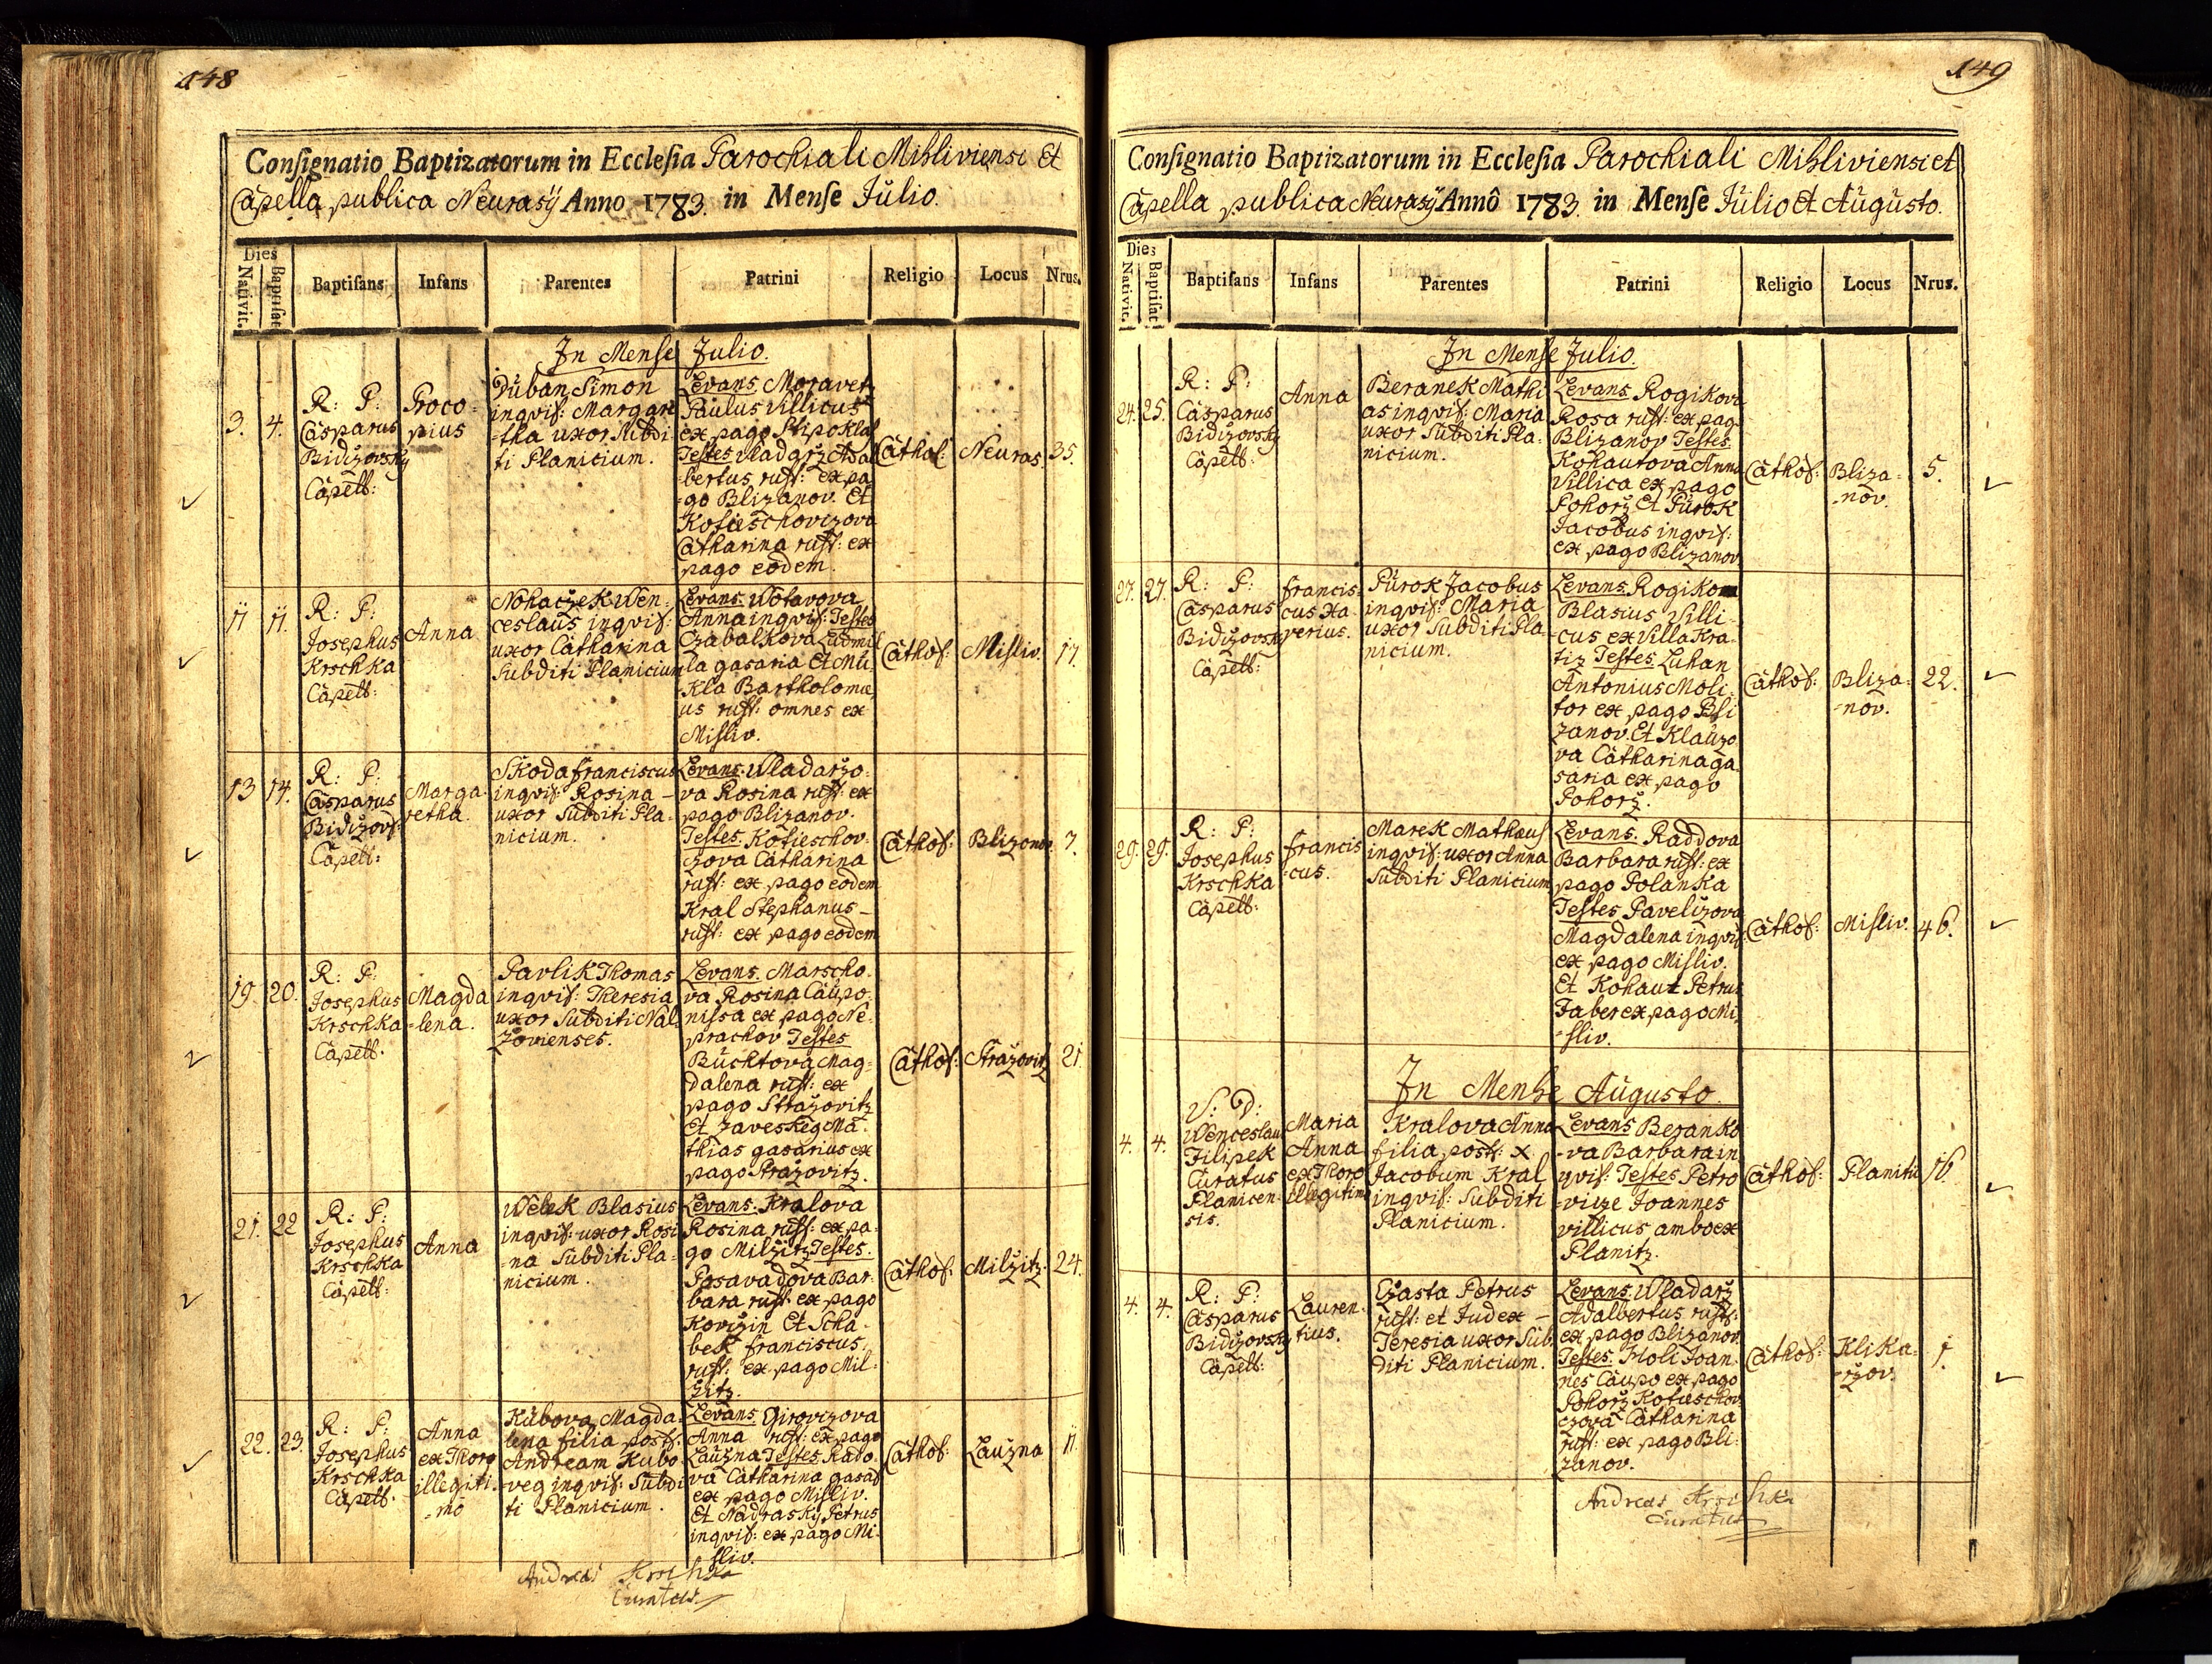 148
Consignatio Baptizatorum in Ecclesia Parochiali Mihliviensi Et
Capella publica Neurasÿ Anno 1783. in Mense Julio.
Dies
Nativit.
Baptisat
Baptisans
Infans
Parentes
Patrini
Religio
Locus
Nrus.
In Mense Julio.
3.
4.
R: P:
Casparus
Bidizovsky
Capell:
Proco-
pius
Duban Simon
inqvil: Margare
-tha uxor Subdi-
ti Planicium.
Levans Moravetz
Paulus Villicus
ex pago Stipoklas
Testes Vladarz Adal
bertus rust: ex pa
-go Blizanov. Et
Kotieschovizova
Catharina rust: ex
pago eodem.
Cathol:
Neuras.
35.
11
11.
R: P:
Josephus
Krschka
Capell:
Anna
Nohaczek Wen-
ceslaus inqvil:
uxor Catharina
Subditi Planicium
Levans Wotavova
Anna inqvil: Testes
Czabalkova Ludmil
la gasaria Et Mu-
kla Bartholomæ
us rust: omnes ex
Misliv.
Cathol:
Misliv.
17.
13
14.
R: P:
Casparus
Bidizovs:
Capell:
Marga-
retha.
Skoda franciscus
inqvil: Rosina –
uxor Subditi Pla-
nicium.
Levans Wladarzo-
va Rosina rust: ex
pago Blizanov.
Testes Kotieschov-
czova Catharina
rust: ex pago eodem
Kral Stephanus –
rust: ex pago eodem
Cathol:
Blizanov.
7.
19.
20.
R: P:
Josephus
Krschka
Capell:
Magda
-lena.
Pavlik Thomas
inqvil: Theresia
uxor Subditi Nal-
zovienses.
Levans. Marscho-
va Rosina Caupo-
nissa ex pago Ne-
prachov Testes
Buchtova Mag-
dalena rust: ex
pago Strazovitz
Et Zaveskeg Ma-
thias gasarius ex
pago Strazovitz.
Cathol:
Strazovitz
21.
21.
22
R: P:
Josephus
Krschka
Capell:
Anna
Welek Blasius
inqvil: uxor Rosi
-na Subditi Pla-
nicium.
Levans: Kralova
Rosina rust: ex pa-
go Milzitz Testes.
Posavadova Bar-
bara rust: ex pago
Kovizin Et Scha-
bek franciscus.
rust: ex pago Mil-
zitz.
Cathol:
Milzitz.
24.
22.
23.
R: P:
Josephus
Krschka
Capell:
Anna
ex Thoro
illegiti-
-mo
Kubova Magda-
lena filia post:
Andream Kubo-
veg inqvil: Subdi
ti Planicium.
Levans Girovizova
Anna rust: ex pago
Lauzna Testes Rado-
va Catharina gasar
ex pago Misliv.
Et Nadrasky Petrus
inqvil: ex pago Mi-
sliv.
Cathol:
Lauzna
11.
Andreas Krschka
Curatus
149
Consignatio Baptizatorum in Ecclesia Parochiali Mihliviensi et
Capella publica Neurasÿ Annô 1783. in Mense Julio Et Augusto.
Dies
Nativit.
Baptisat
Baptisans
Infans
Parentes
Patrini
Religio
Locus
Nrus.
In Mense Julio.
24.
25.
R: P:
Casparus
Bidizovsky
Capell:
Anna
Beranek Mathi
as inqvil: Maria
uxor Subditi Pla-
nicium.
Levans Rogikova
Rosa rust: ex pag
Blizanov Testes
Kohautova Anna
Villica ex pago
Pohorz Et Purok
Jacobus inqvil:
ex pago Blizanov
Cathol:
Bliza-
-nov.
5.
27.
27.
R: P:
Casparus
Bidizovsky
Capell:
francis-
cus Xa-
verius.
Purok Jacobus
inqvil: Maria
uxor Subditi Pla-
nicium.
Levans Rogikom
Blasius Villi-
cus ex Villa Kra-
tiz Testes Luhan
Antonius Moli-
tor ex pago Bli
zanov. Et Klauzo-
va Catharina ga-
saria ex pago
Pohorz.
Cathol:
Bliza-
-nov.
22.
29.
29.
R: P:
Josephus
Krschka
Capell:
francis
-cus.
Marek Mathæus
inqvil: uxor Anna
Subditi Planicium
Levans. Raddova
Barbara rust: ex
pago Polanka
Testes Pavelizova
Magdalena inqvil:
ex pago Misliv.
Et Kohaut Petrus
Faber ex pago Mi-
-sliv.
Cathol:
Misliv.
46.
In Mense Augusto.
4.
4.
V: D:
Wenceslaus
Filipek
Curatus
Planicen-
sis.
Maria
Anna
ex Thoro
illegitimo
Kralova Anna
filia post: X
Jacobum Kral
inqvil: Subditi
Planicium.
Levans Beranko
-va Barbara in
qvil: Testes Petro
-vize Joannes
villicus ambo ex
Planitz.
Cathol:
Planitz
16.
4.
4.
R: P:
Casparus
Bidizovsky
Capell:
Lauren-
tius.
Czasta Petrus
rust: et Judex –
Teresia uxor Sub-
diti Planicium.
Levans. Wladarz
Adalbertus rust:
ex pago Blizanov
Testes. Holi Joan-
nes Caupo ex pago
Pohorz Kotieschov
czova Catharina
rust: ex pago Bli-
zanov.
Cathol:
Klika-
-rzov.
1.
Andreas Krschka
Curatus